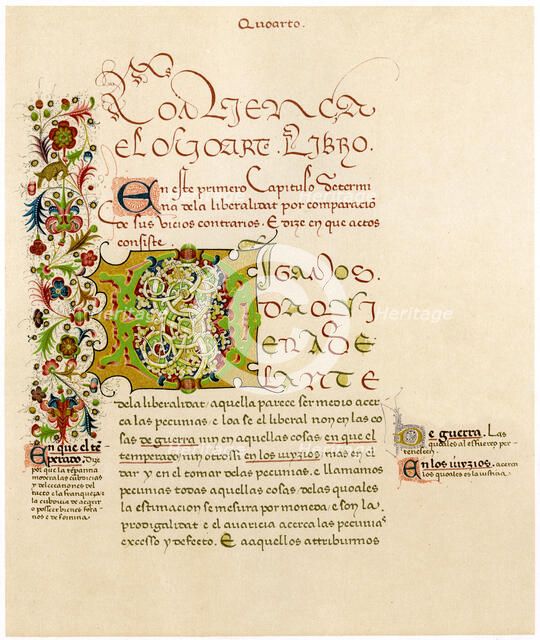 Quoarto.
Comiença
el Quoarto Libro.
En este primero Capitulo determi
na dela liberalitat por comparació
de sus vicios contrarios. E dize en que actos
consiste.
Digamos
dronqui
era de
lante
dela liberalitat, aquella parece ser medio acer
ca las pecunias. e loa se el liberal non en las co
sas de guerra, nin en aquellas cosas, en que el
temperado, nin otrossi en los iuyzios. mas en el
dar y en el tomar delas pecunias. e llamamos
pecunias todas aquellas cosas, delas quoales
la estimacion se mesura por moneda. e son la
prodigalitat e el auaricia acerca las pecunias
excesso y defecto. E a aquellos attribuimos
En que el tē
perado. Dize
por que la
modera las cubdicias
y delectaciones del
tacto. e la franqueza
la cubdicia de aqerir
o posseer bienes fora
nos e de fortuna.
De guerra. Las
quoales al esfuerço per
tenescen.
En los iuyzios. acerca
los quoales es la iusticia.
Heritage
Heritage